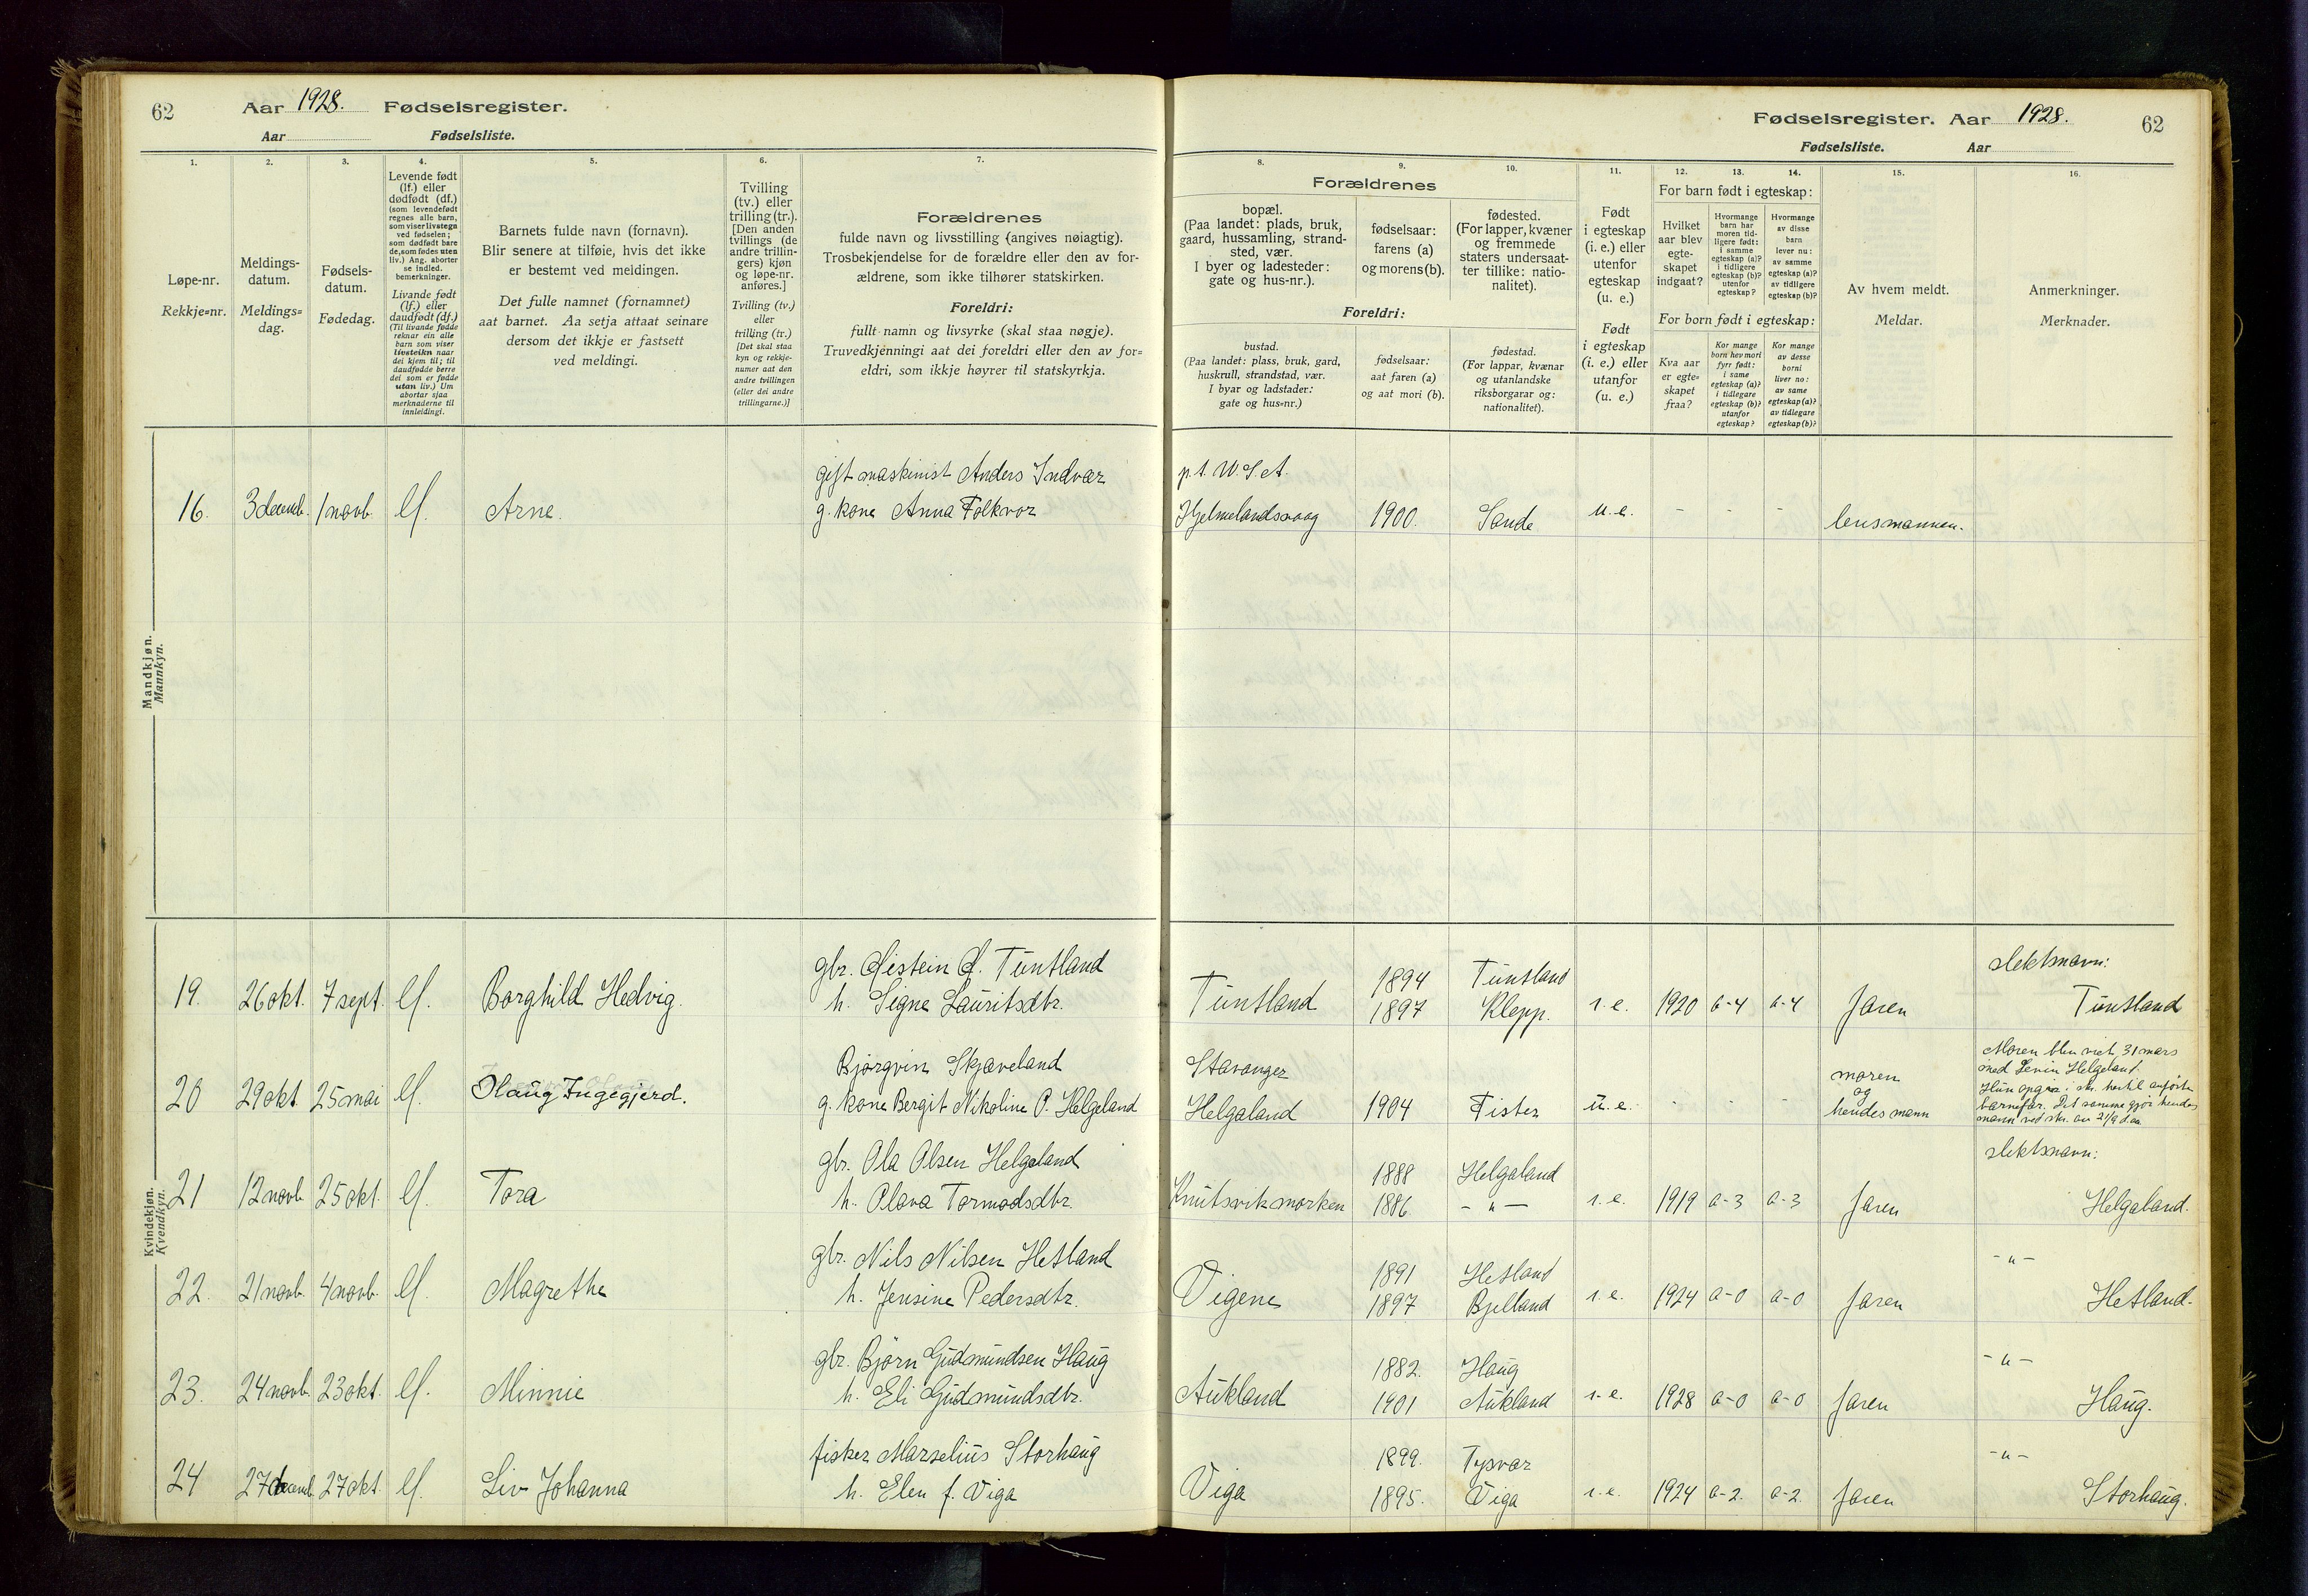 62 Aar 1928. Fødselsregister.
Aar Fødselsliste.
1.
2.
3.
4.
5.
6.
7.
Løpe-nr.
Rekkje=nr.
Meldings-
datum.
Meldings=
dag.
Fødsels-
datum.
Fødedag.
Levende født
(lf.) eller
dødfødt (df.)
(som levendefødt
regnes alle barn,
som viser livstegn
ved fødselen;
som dødfødt bare
de, som fødes uten
liv.) Ang. aborter
se indled.
bemerkninger.
Livande født
(lf.) eller
daudfødt (df.)
(Til livande fødde
reknar ein alle
barn som viser
livsteikn naar
dei kjem til; til
daudfødde berre
dei som er fødde
utan liv.) Um
abortar sjaa
merknaderne til
innleidingi.
Barnets fulde navn (fornavn).
Blir senere at tilføie, hvis det ikke
er bestemt ved meldingen.
Det fulle namnet (fornamnet)
aat barnet. Aa setja attaat seinare
dersom det ikkje er fastsett
ved meldingi.
Tvilling
(tv.) eller
trilling (tr.).
[Den anden
tvillings (de
andre trillin-
gers) kjøn
og løpe-nr.
anføres.]
Tvilling (tv.)
eller
trilling (tr.)
[Det skal staa
kyn og rekkje-
numer aat den
andre tvillingen
(eller dei andre
trillingarne.)]
Forældrenes
fulde navn og livsstilling (angives nøiagtig).
Trosbekjendelse for de forældre eller den av for-
ældrene, som ikke tilhører statskirken.
Foreldri:
fullt namn og livsyrke (skal staa nøgje).
Truvedkjenningi aat dei foreldri eller den av for=
eldri, som ikkje høyrer til statskyrkja.
Mandkjøn.
Mannkyn.
16. 3 decemb. 1 novb. lf. Arne.
gift maskinist Anders Indvær
g. kone Anna Folkvor
Kvindekjøn.
Kvendkyn.
19. 26 okt. 7 sept. lf. Borghild Hedvig.
gbr. Øistein Ø. Tuntland
h. Signe Lauritsdtr.
20 29 okt 25 mai lf. Olaug Ingegjerd.
Bjørgvin Skjæveland
g. kone Bergit Nikoline P. Helgeland
21 12 novb 25 okt. lf. Tora
gbr. Ola Olsen Helgeland
h. Olava Tormodsdtr.
22. 21 novb. 4 novb. lf. Magrethe
gbr. Nils Nilsen Hetland
h. Jensine Pedersdtr.
23. 24 novb. 23 okt. lf. Minnie
gbr. Bjørn Gudmundsen Haug
h. Eli Gudmundsdtr.
24 27 decemb. 27 okt. lf. Liv Johanna
fisker Marselius Storhaug
h. Elen f. Viga
Fødselsregister. Aar 1928. 62
Fødselsliste. Aar
8.
9.
10.
11.
12.
13.
14.
15.
16.
Forældrenes
bopæl.
(Paa landet: plads, bruk,
gaard, hussamling, strand-
sted, vær.
I byer og ladesteder:
gate og hus-nr.).
fødselsaar:
farens (a)
og morens (b).
fødested.
(For lapper, kvæner
og fremmede
staters undersaat-
ter tillike: natio-
nalitet).
Foreldri:
bustad.
(Paa landet: plass, bruk, gard,
huskrull, strandstad, vær.
I byar og ladstader:
gate og hus=nr.)
fødselsaar:
aat faren (a)
og aat mori (b).
fødestad.
(For lappar, kvænar
og utanlandske
riksborgarar og:
nationalitet).
Født
i egteskap
(i. e.) eller
utenfor
egteskap
(u. e.)
Født
i egteskap
(i. e.) eller
utanfor
(u. e.)
For barn født i egteskap:
Hvilket
aar blev
egte-
skapet
indgaat?
Hvormange
barn har
moren tid-
ligere født:
i samme
egteskap (a)?
i tidligere
egteskap (b)?
utenfor
egteskap?
Hvormange
av disse
barn
lever nu:
av samme
egteskap (a)?
av tidligere
egteskap (b)?
For born født i egteskap:
Kva aar
er egte=
skapet
fraa?
Kor mange
born hev mori
fyrr født:
i same
egteskap (a)?
i tidlegare
egteskap (b)?
utanfor
egteskap?
Kor mange
av desse
borni
liver no:
av same
egteskap (a)?
av tidlegare
egteskap (b)?
Av hvem meldt.
Meldar.
Anmerkninger.
Merknader.
p.t. W.S.A.
Hjelmelandsvaag 1900. Sande u.e. - - - lensmannen.
Tuntland 1894 Tuntland
1897 Klepp. i.e. 1920 a-4 a-4 faren
slektsnavn:
Tuntland
Stavanger
Helgaland 1904 Fister u.e. - - -
moren
og
hendes mann
Moren blev viet 31 mars
med Levin Helgeland.
Hun opgir i skr. hertil anførte
barnefar. Det samme gjør hendes
mann ved skr. av
Knutsvikmorken 1888 Helgaland
1886 - " - i.e. 1919 a-3 a-3 faren
slektsnavn:
Helgaland.
Vigene 1891 Hetland
1897 Bjelland i.e. 1924 a-0 a-0 faren
- " -
Hetland.
Aukland 1882. Haug
1901 Aukland i.e. 1928 a-0 a-0 faren
- " -
Haug.
Viga 1899. Tysvær
1895. Viga i.e. 1924 a-2. a-2. faren
- " -
Storhaug.